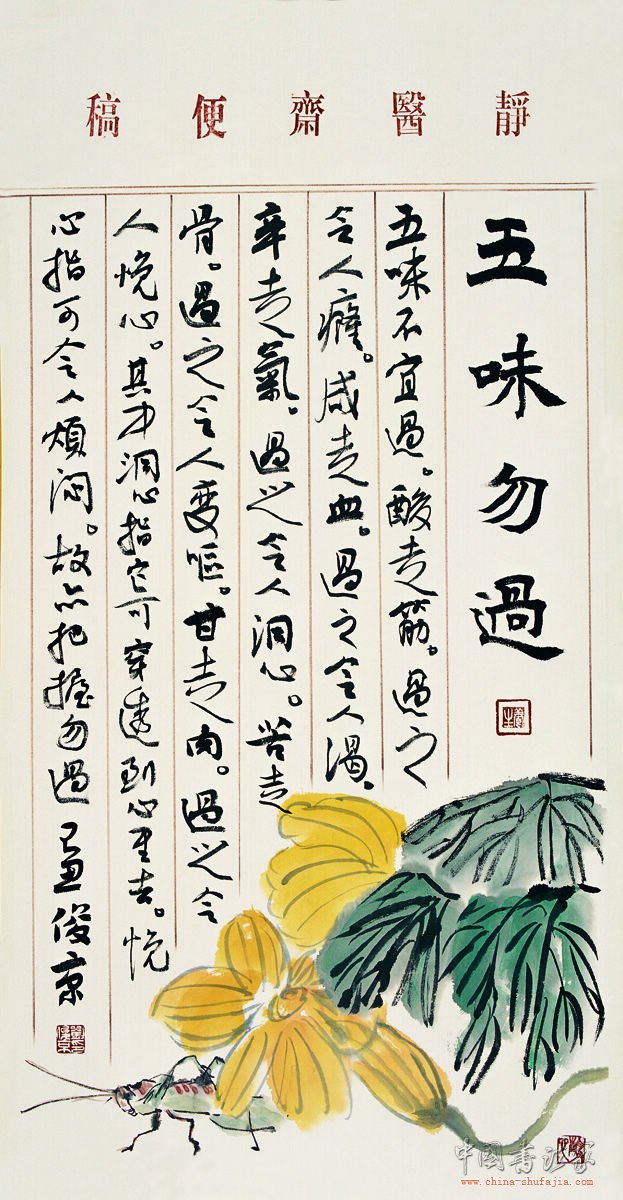 靜醫齋便稿
五味勿過
五味不宜過。酸走筋。過之
令人癃。咸走血。過之令人渴。
辛走氣。過之令人洞心。苦走
骨。過之令人变嘔。甘走肉。過之令
人悗心。其中洞心指它可穿透到心里去。悗
心指可令人煩闷。故亦把握勿過 俊京
中国书法家
www.china-shufajia.com